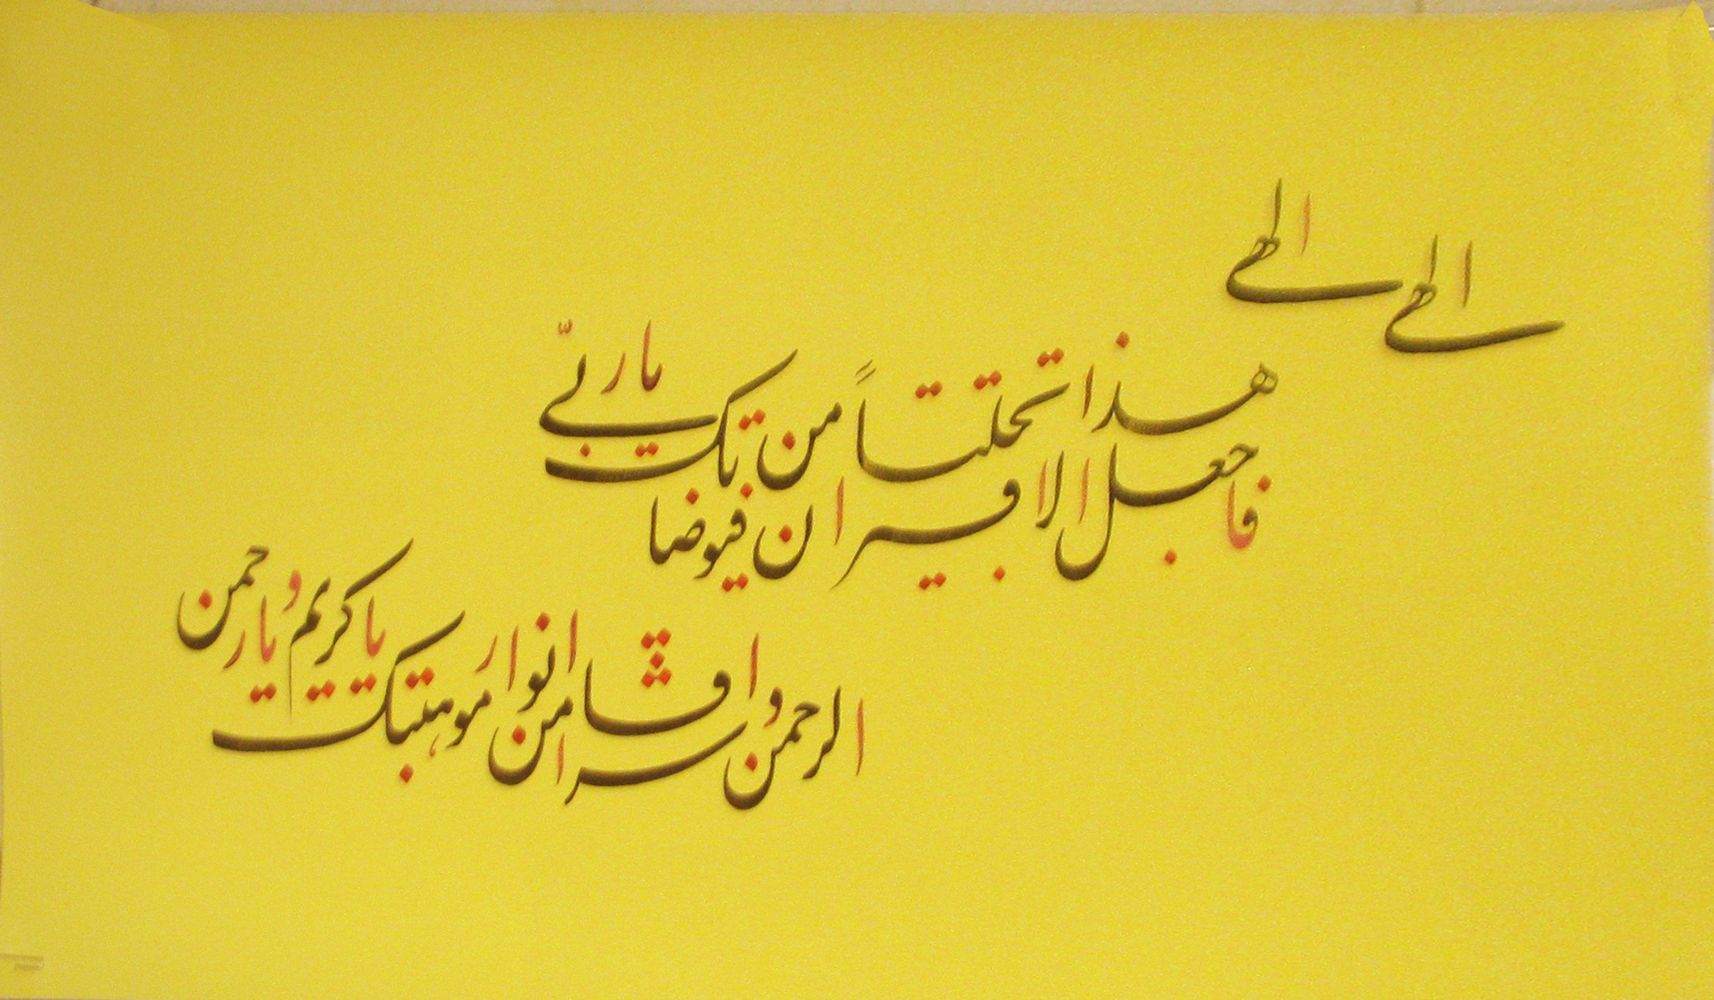 الهی الهی
هذا تجلیاً من تک یا ربی
فاجعل الافیران فیوضات
الرحمن و اسراقا من انوار موهبتک یا کریم و یا رحمن